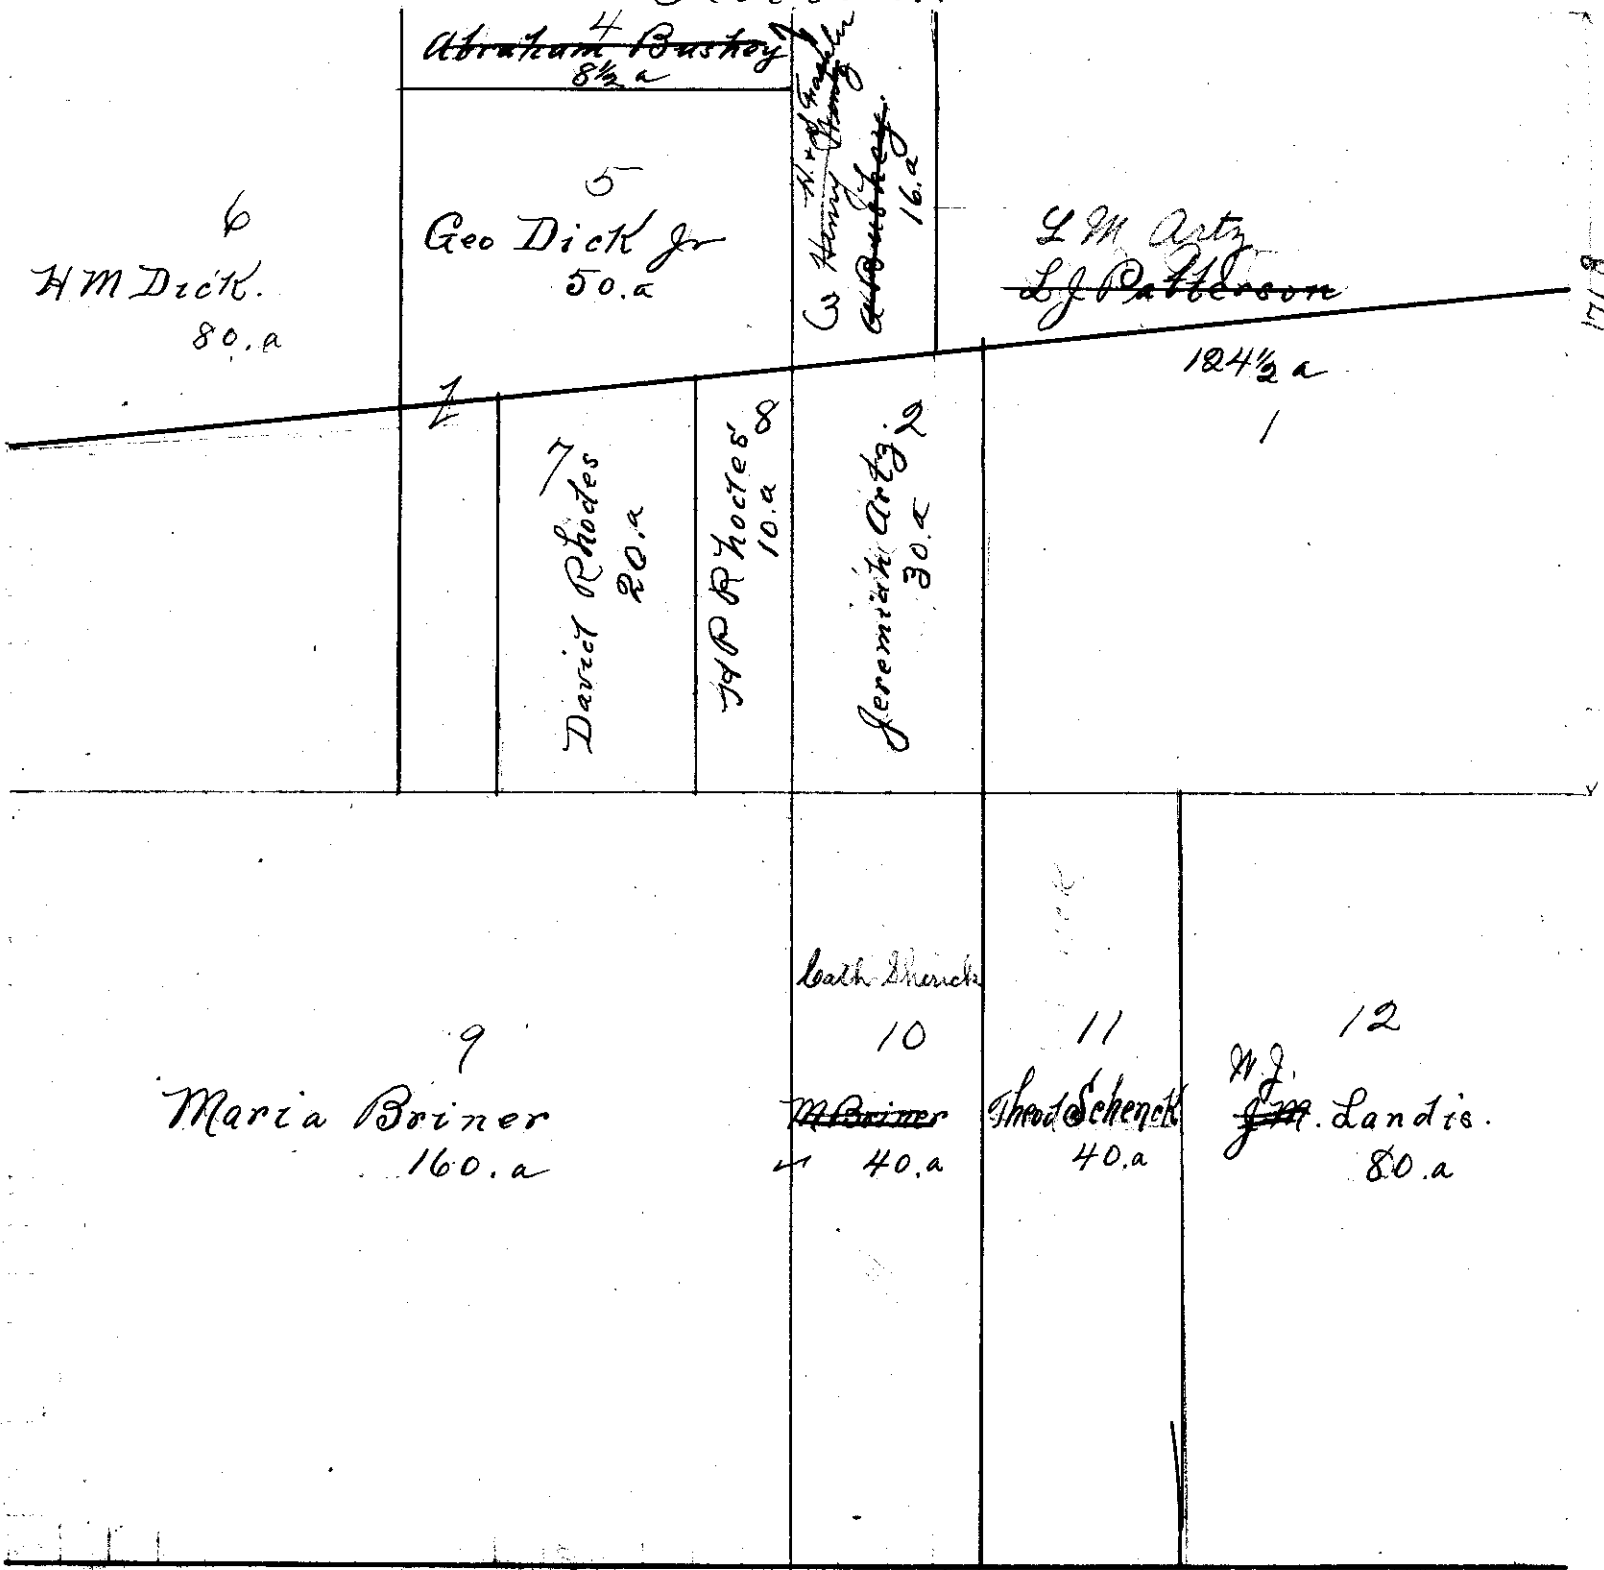 4
Abraham Bushey
8½ a
5
Geo Dick Jr
50.a
6
H M Dick.
80.a
3 Henry
A Bushey.
16.a
L M Artz
L J Patterson
124½ a
1
7
David Rhodes
20.a
H P Rhodes 8
10.a
Jeremiah Artz. 2
30.a
9
Maria Briner
160.a
Cath Shenck
10
M Briner
40.a
11
Theod Schenck
40.a
12
W.J.
J.M. Landis.
80.a